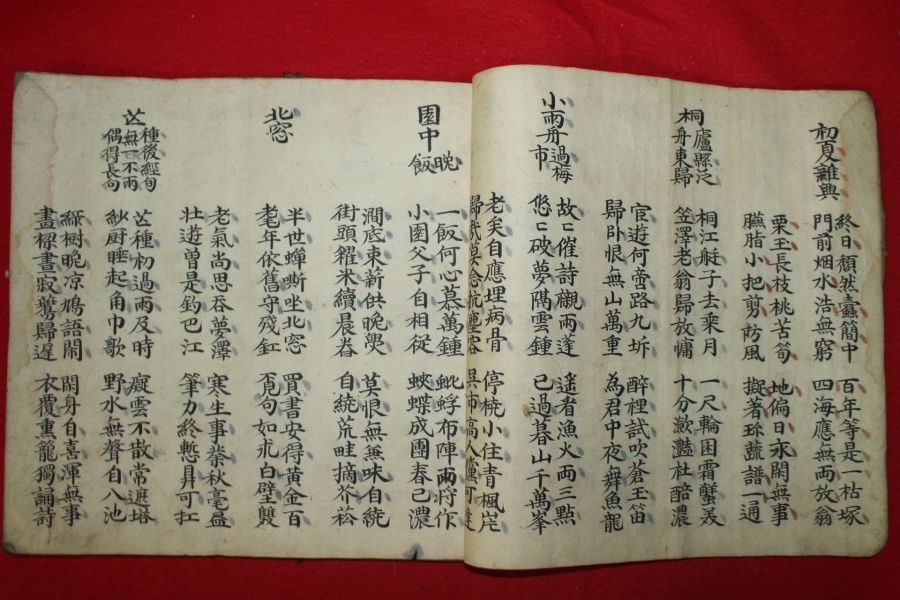 初夏雜興
終日頹然蠹簡中 百年等是一枯塚
門前烟水浩無窮 四海應無兩放翁
栗玉長枝桃苦筍 地偏日永閑無事
臙脂小把剪防風 擬著琢蔬譜一通
桐廬縣泛
舟東歸
桐江艇子去乘月 一尺輪囷霜蟹美
笠澤老翁歸放慵 十分瀲灩社醅濃
宦遊何啻路九折 醉裡試吹蒼玉笛
歸臥恨無山萬重 為君中夜舞魚龍
小雨舟過梅
市
故〻催詩襯雨蓬 遙看漁火兩三點
悠〻破夢隔雲鍾 已過暮山千萬峯
老矣自應埋病骨 停橈小住青楓岸
歸哉莫念抗塵容 吳市高人儻可逢
園中晚
飯
一飯何心慕萬鍾 蚍蜉布陣雨將作
小園父子自相從 蛺蝶成團春已濃
澗底束薪供晚爨 莫恨無味自繞
街頭糴米續晨舂 自繞荒畦摘芥菘
北窓
半世蟬嘶坐北窓 買書安得黃金百
耄年依舊守殘釭 覓句如求白璧雙
老氣尚思吞夢澤 寒生事業秋毫盡
壯遊曾是釣巴江 筆力終慙鼎可扛
芒種後經旬
無一不雨
偶得長句
芒種初過雨及時 癡雲不散常遮塔
紗厨睡起角巾歌 野水無聲自入池
綠樹晚凉鳩語鬧 閑身自喜渾無事
畫樑晝寂鷰歸遲 衣覆熏籠獨誦詩